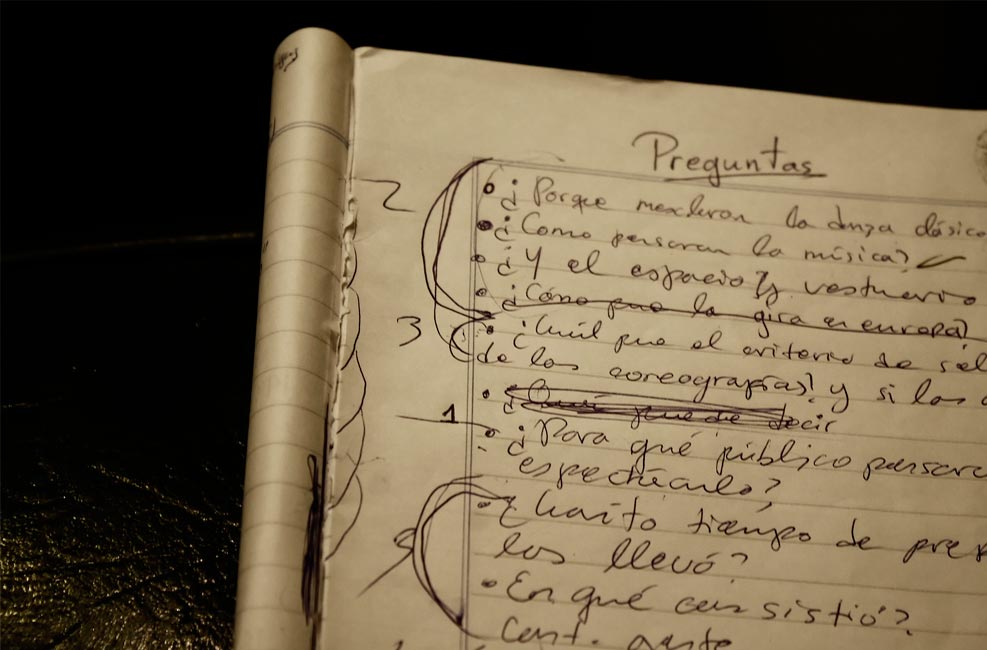 Preguntas
2 • ¿Porque mezclaron la danza clásic
• ¿Como pensaron la música? ✓
• ¿Y el espacio? y vestuario
• ¿Cómo fue la gira en europa?
3 • ¿Cuál fue el criterio de sel
de las coreografías? y si los
• ¿ puede decir
1 • ¿Para qué público pensaro
espectáculo?
5 • ¿Cuánto tiempo de prep
les llevó?
• En qué consistió?
Cant. gente